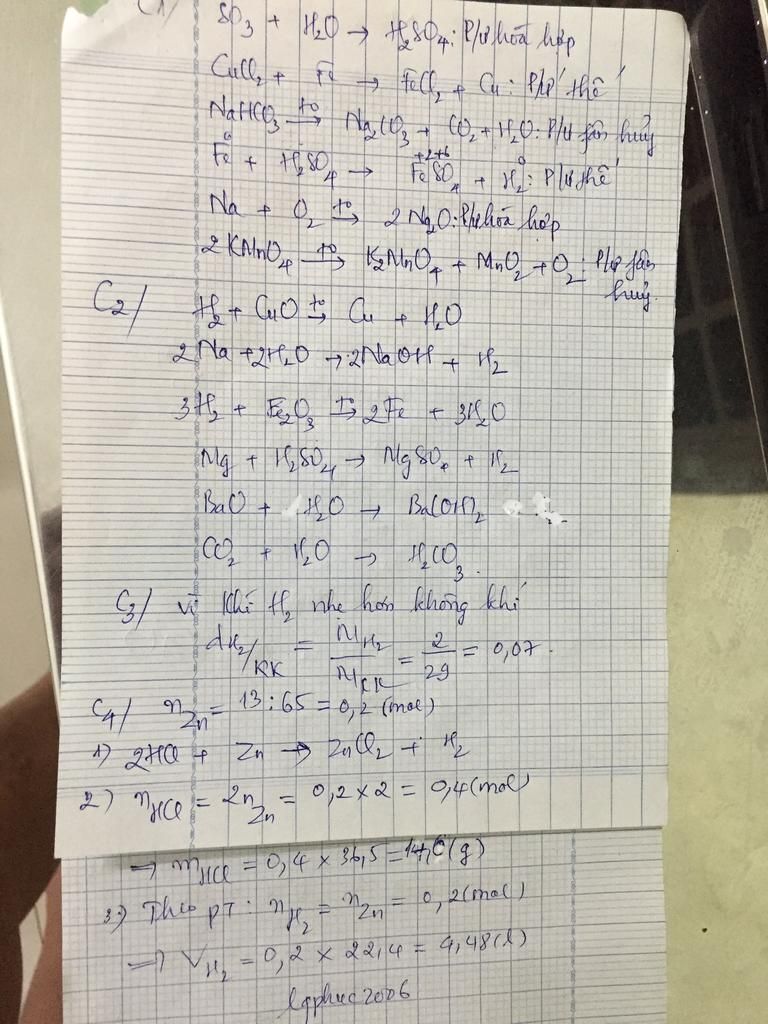 C1/ SO3 + H2O → H2SO4: P/ứ hoá hợp
CuCl2 + Fe → FeCl2 + Cu: P/ứ thế
NaHCO3 →(to) Na2CO3 + CO2 + H2O: P/ứ phân huỷ
Fe(0) + H2SO4 → Fe(+2)S(+6)O4 + H2(0): P/ứ thế
Na + O2 →(to) 2Na2O: P/ứ hoá hợp
2KMnO4 →(to) K2MnO4 + MnO2 + O2: P/ứ phân
huỷ.
C2/ H2 + CuO →(to) Cu + H2O
2Na + 2H2O → 2NaOH + H2
3H2 + Fe2O3 →(to) 2Fe + 3H2O
Mg + H2SO4 → MgSO4 + H2
BaO + H2O → Ba(OH)2
CO2 + H2O → H2CO3.
C3/ Vì khí H2 nhẹ hơn không khí
dH2/KK = MH2/MKK = 2/29 = 0,07.
C4/ nZn = 13 : 65 = 0,2 (mol)
1) 2HCl + Zn → ZnCl2 + H2
2) nHCl = 2nZn = 0,2 x 2 = 0,4 (mol)
→ mHCl = 0,4 x 36,5 = 14,6 (g)
3) Theo pt: nH2 = nZn = 0,2 (mol)
→ VH2 = 0,2 x 22,4 = 4,48 (l)
lqphuc2006